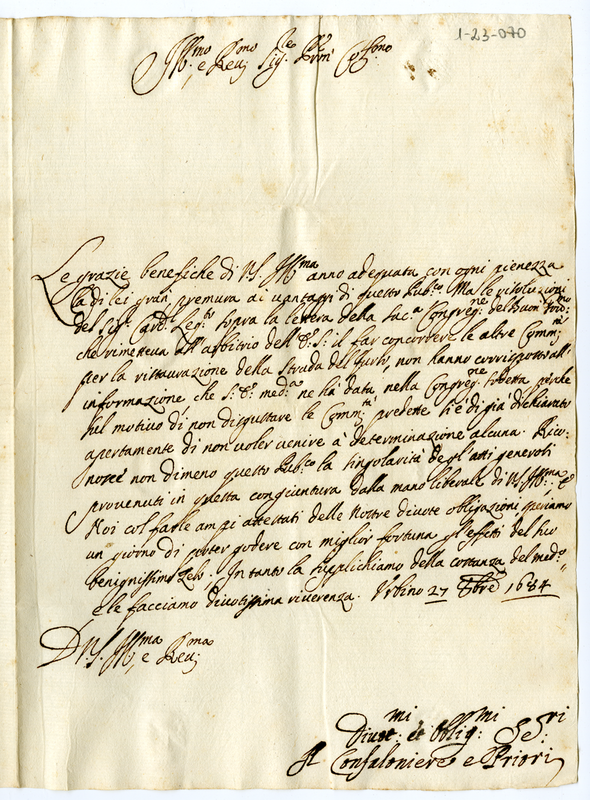 1-23-070
Ill.mo e Rev. Sig.re Pron Col.mo
Le grazie benefiche di V.S. Ill.ma anno adequata con ogni pienezza
la di lei gran premura ai vantaggi di questo Pub.co Ma le risoluzioni
del Sig. Card. Leg.to sopra la lettera della Sac.a Congreg.ne del Buon
che rimetteva all'arbitrio dell'E.S. il far concorrere le altre Comm.tà
per la ristaurazione della Strada del furlo, non hanno corrisposto all'
informazione che S.E. med.a ne ha data nella Congreg.ne sudetta perche
sul motivo di non disgustare le Comm.tà predette si è di già dichiarato
apertamente di non voler venire à determinazione alcuna. Rico:
nosce non dimeno questo Pub.co la singolarità degl'atti generosi
provenuti in questa congiuntura dalla mano liberale di V.S. Ill.ma e
Noi col farle ampi attestati delle nostre divote obligazioni speriamo
un giorno di poter godere con miglior fortuna gl'effetti del suo
benignissimo zelo. In tanto la supplichiamo della costanza del med.o
e le facciamo divotissima riverenza. Urbino 27 1684
D V.S. Ill.ma e Rev.ma
Divot.mi et Oblig.mi Se.ri
Il Confaloniere e Priori